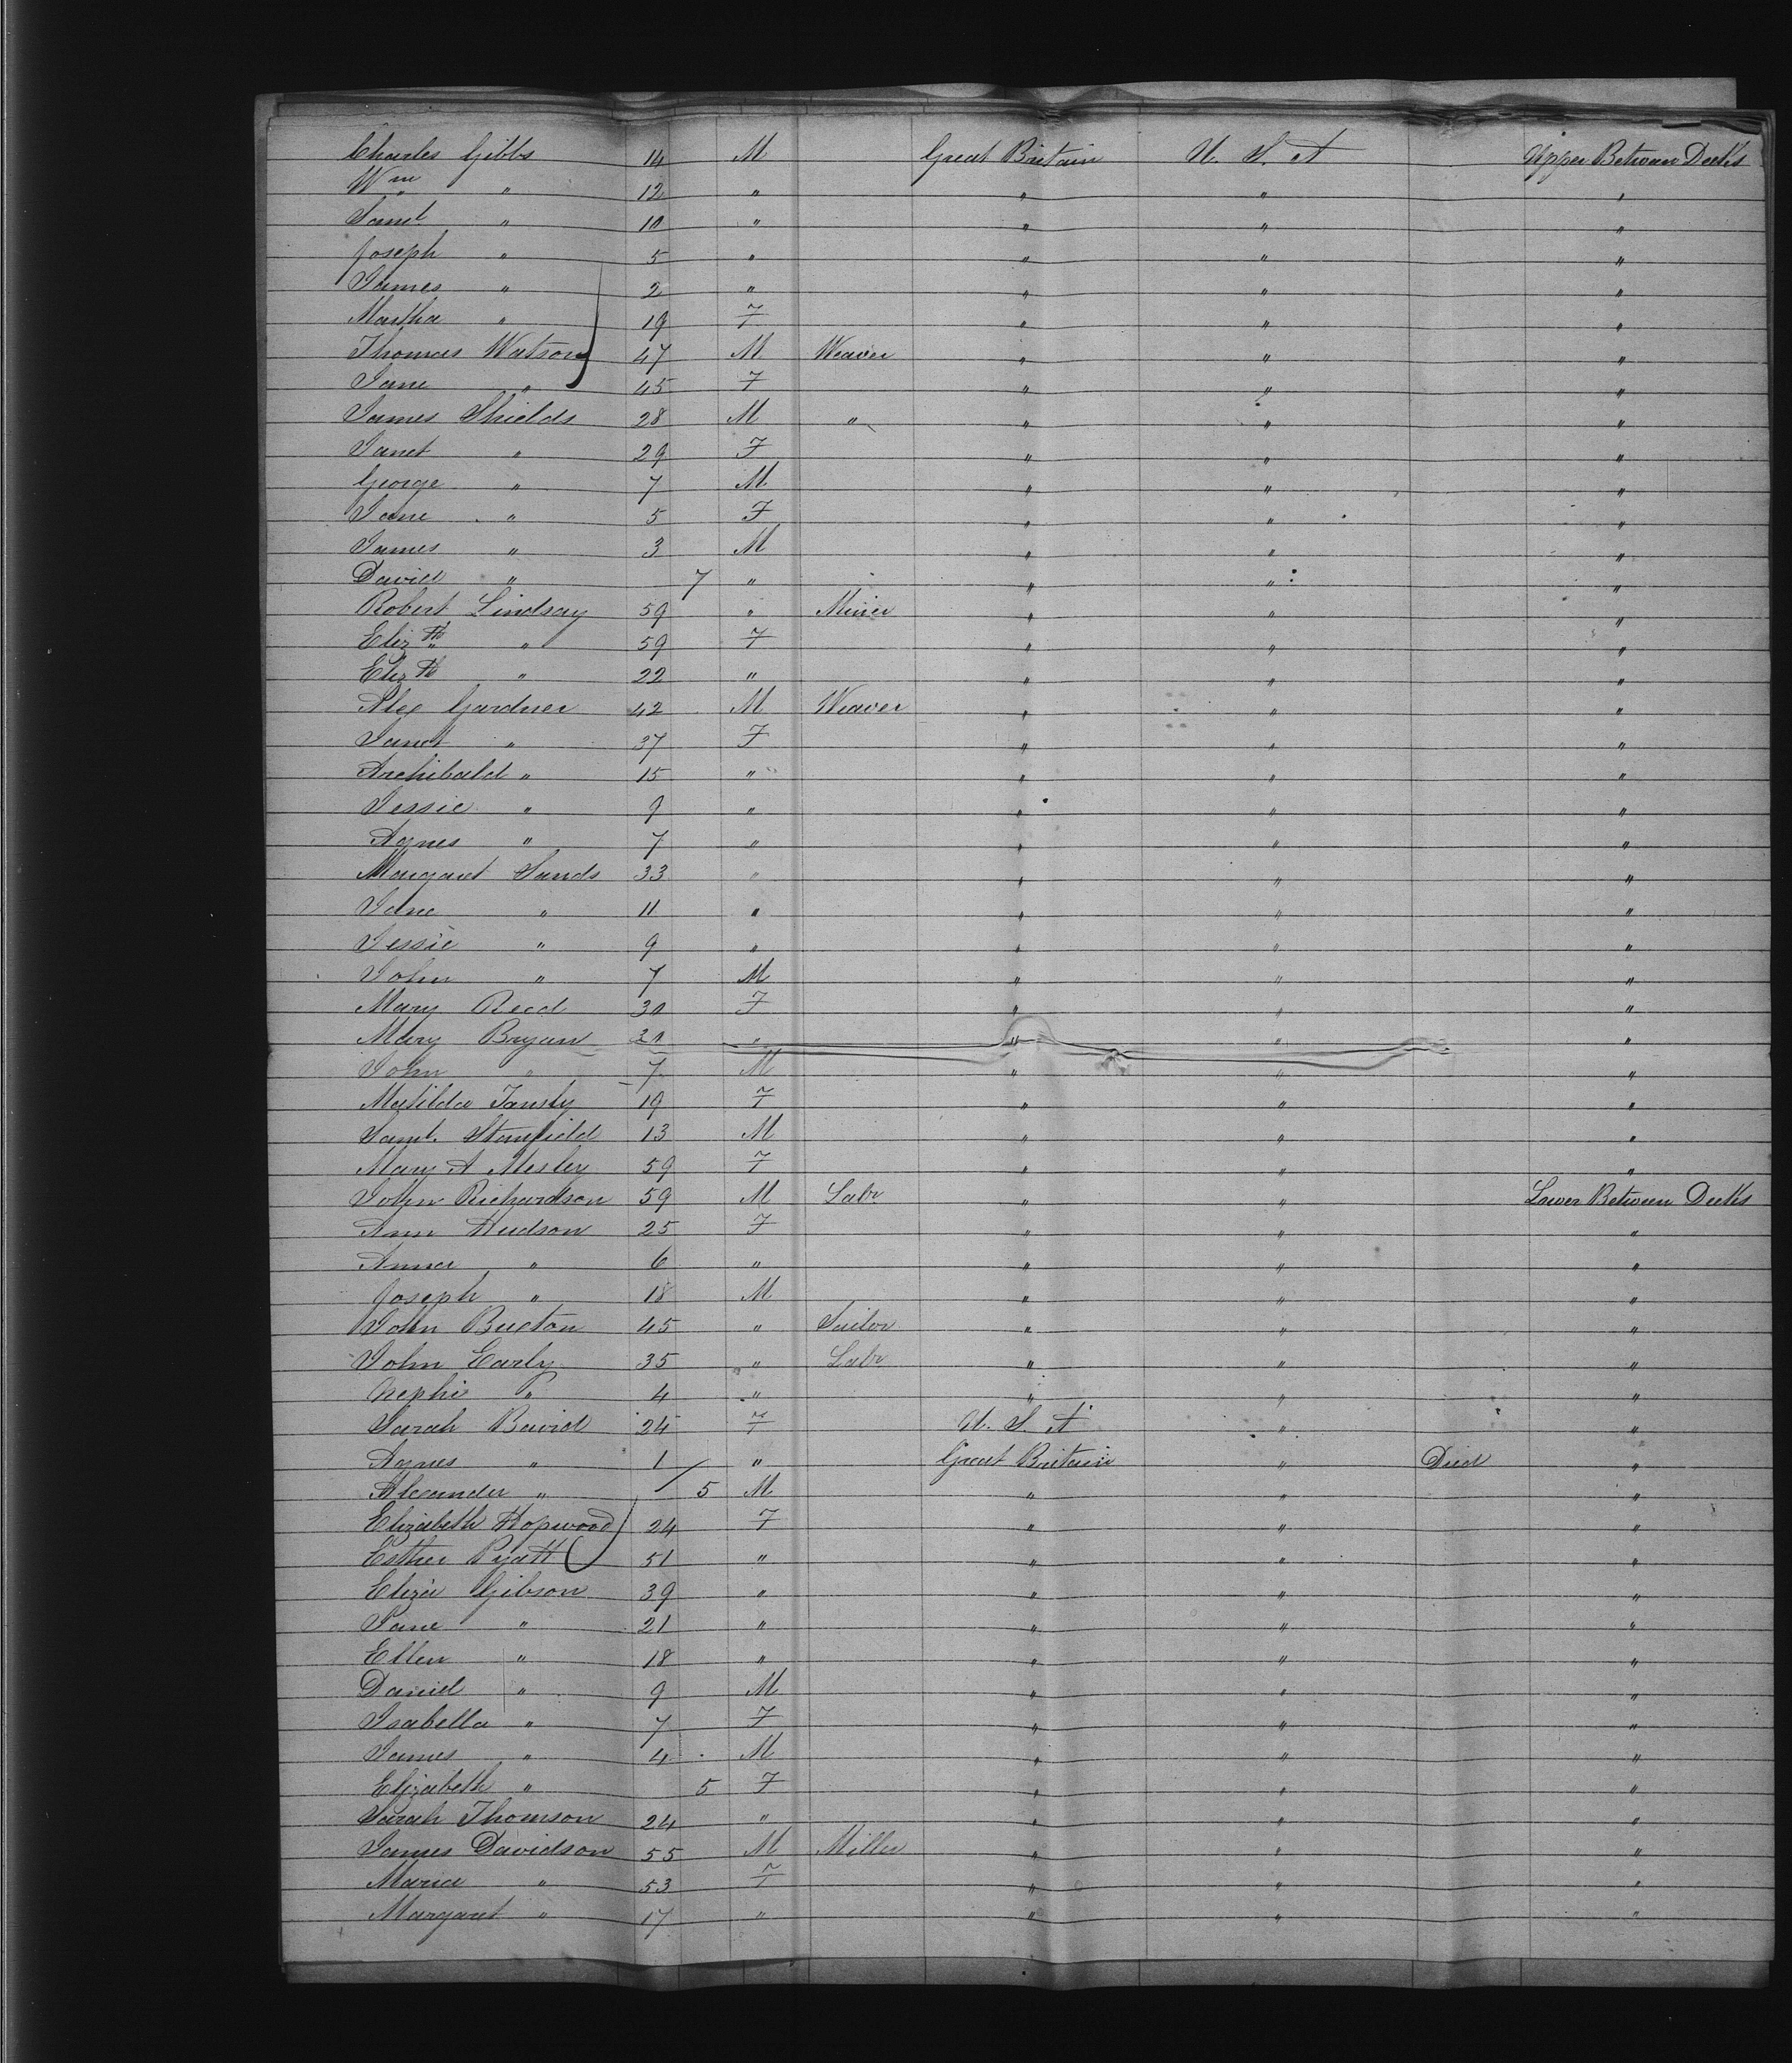 Charles Gibbs 14 M Great Britain U. S. A Upper Between Decks
Wm " 12 " " " "
Saml " 10 " " " "
Joseph " 5 " " " "
James " 2 " " " "
Martha " 19 F " " "
Thomas Watson 47 M Weaver " " "
Jane " 45 F " " "
James Shields 28 M " " " "
Janet " 29 F " " "
George " 7 M " " "
Jane " 5 F " " "
James " 3 M " " "
David " 7 " " " "
Robert Lindsay 59 " Miner " " "
Elizth " 59 F " " "
Elizth " 22 " " " "
Alex Gardner 42 M Weaver " " "
Janet " 37 F " " "
Archibald " 15 " " " "
Jessie " 9 " " " "
Agnes " 7 " " " "
Margaret Sands 33 " " " "
Jane " 11 " " " "
Jessie " 9 " " " "
John " 7 M " " "
Mary Reed 30 F " " "
Mary Bryan 30 " " " "
John " 7 M " " "
Matilda Tansly 19 F " " "
Saml. Stanfield 13 M " " "
Mary A Mesley 59 F " " "
John Richardson 59 M Labr " " Lower Between Decks
Ann Hudson 25 F " " "
Anna " 6 " " " "
Joseph " 18 M " " "
John Buxton 45 " Sailor " " "
John Early 35 " Labr " " "
Nephi " 4 " " " "
Sarah Baird 24 F U. S. A " "
Agnes " 1 " Great Britain " Died "
Alexander " 5 M " " "
Elizabeth Hopwood 24 F " " "
Esther Pyatt 51 " " " "
Eliza Gibson 39 " " " "
Jane " 21 " " " "
Ellen " 18 " " " "
Daniel " 9 M " " "
Isabella " 7 F " " "
James " 4 M " " "
Elizabeth " 5 F " " "
Sarah Thomson 24 " " " "
James Davidson 55 M Miller " " "
Maria " 53 F " " "
Margaret " 17 " " " "